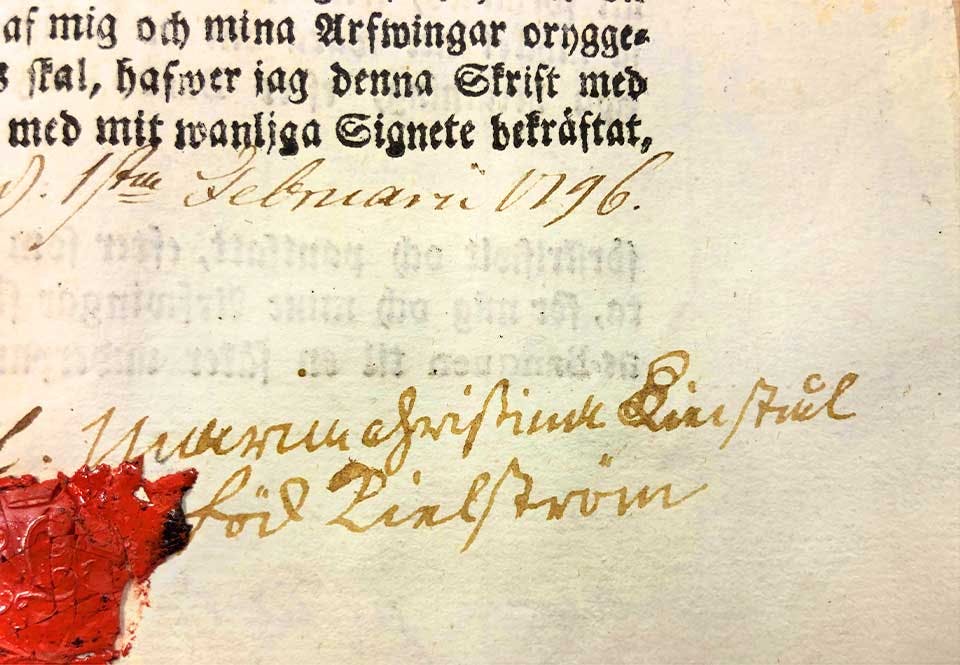 af mig och mina Arfwingar orygge=
s skal, hafwer jag denna Skrift med
med mit wanliga Signete bekräftat,
d. 1ste Februarii 1796.
Maria Christina
född Kielström